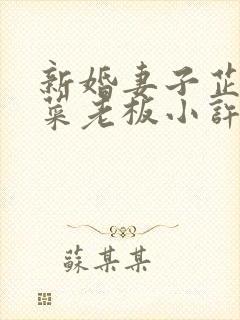 新婚妻子芷
菜老板小許
蘇某某